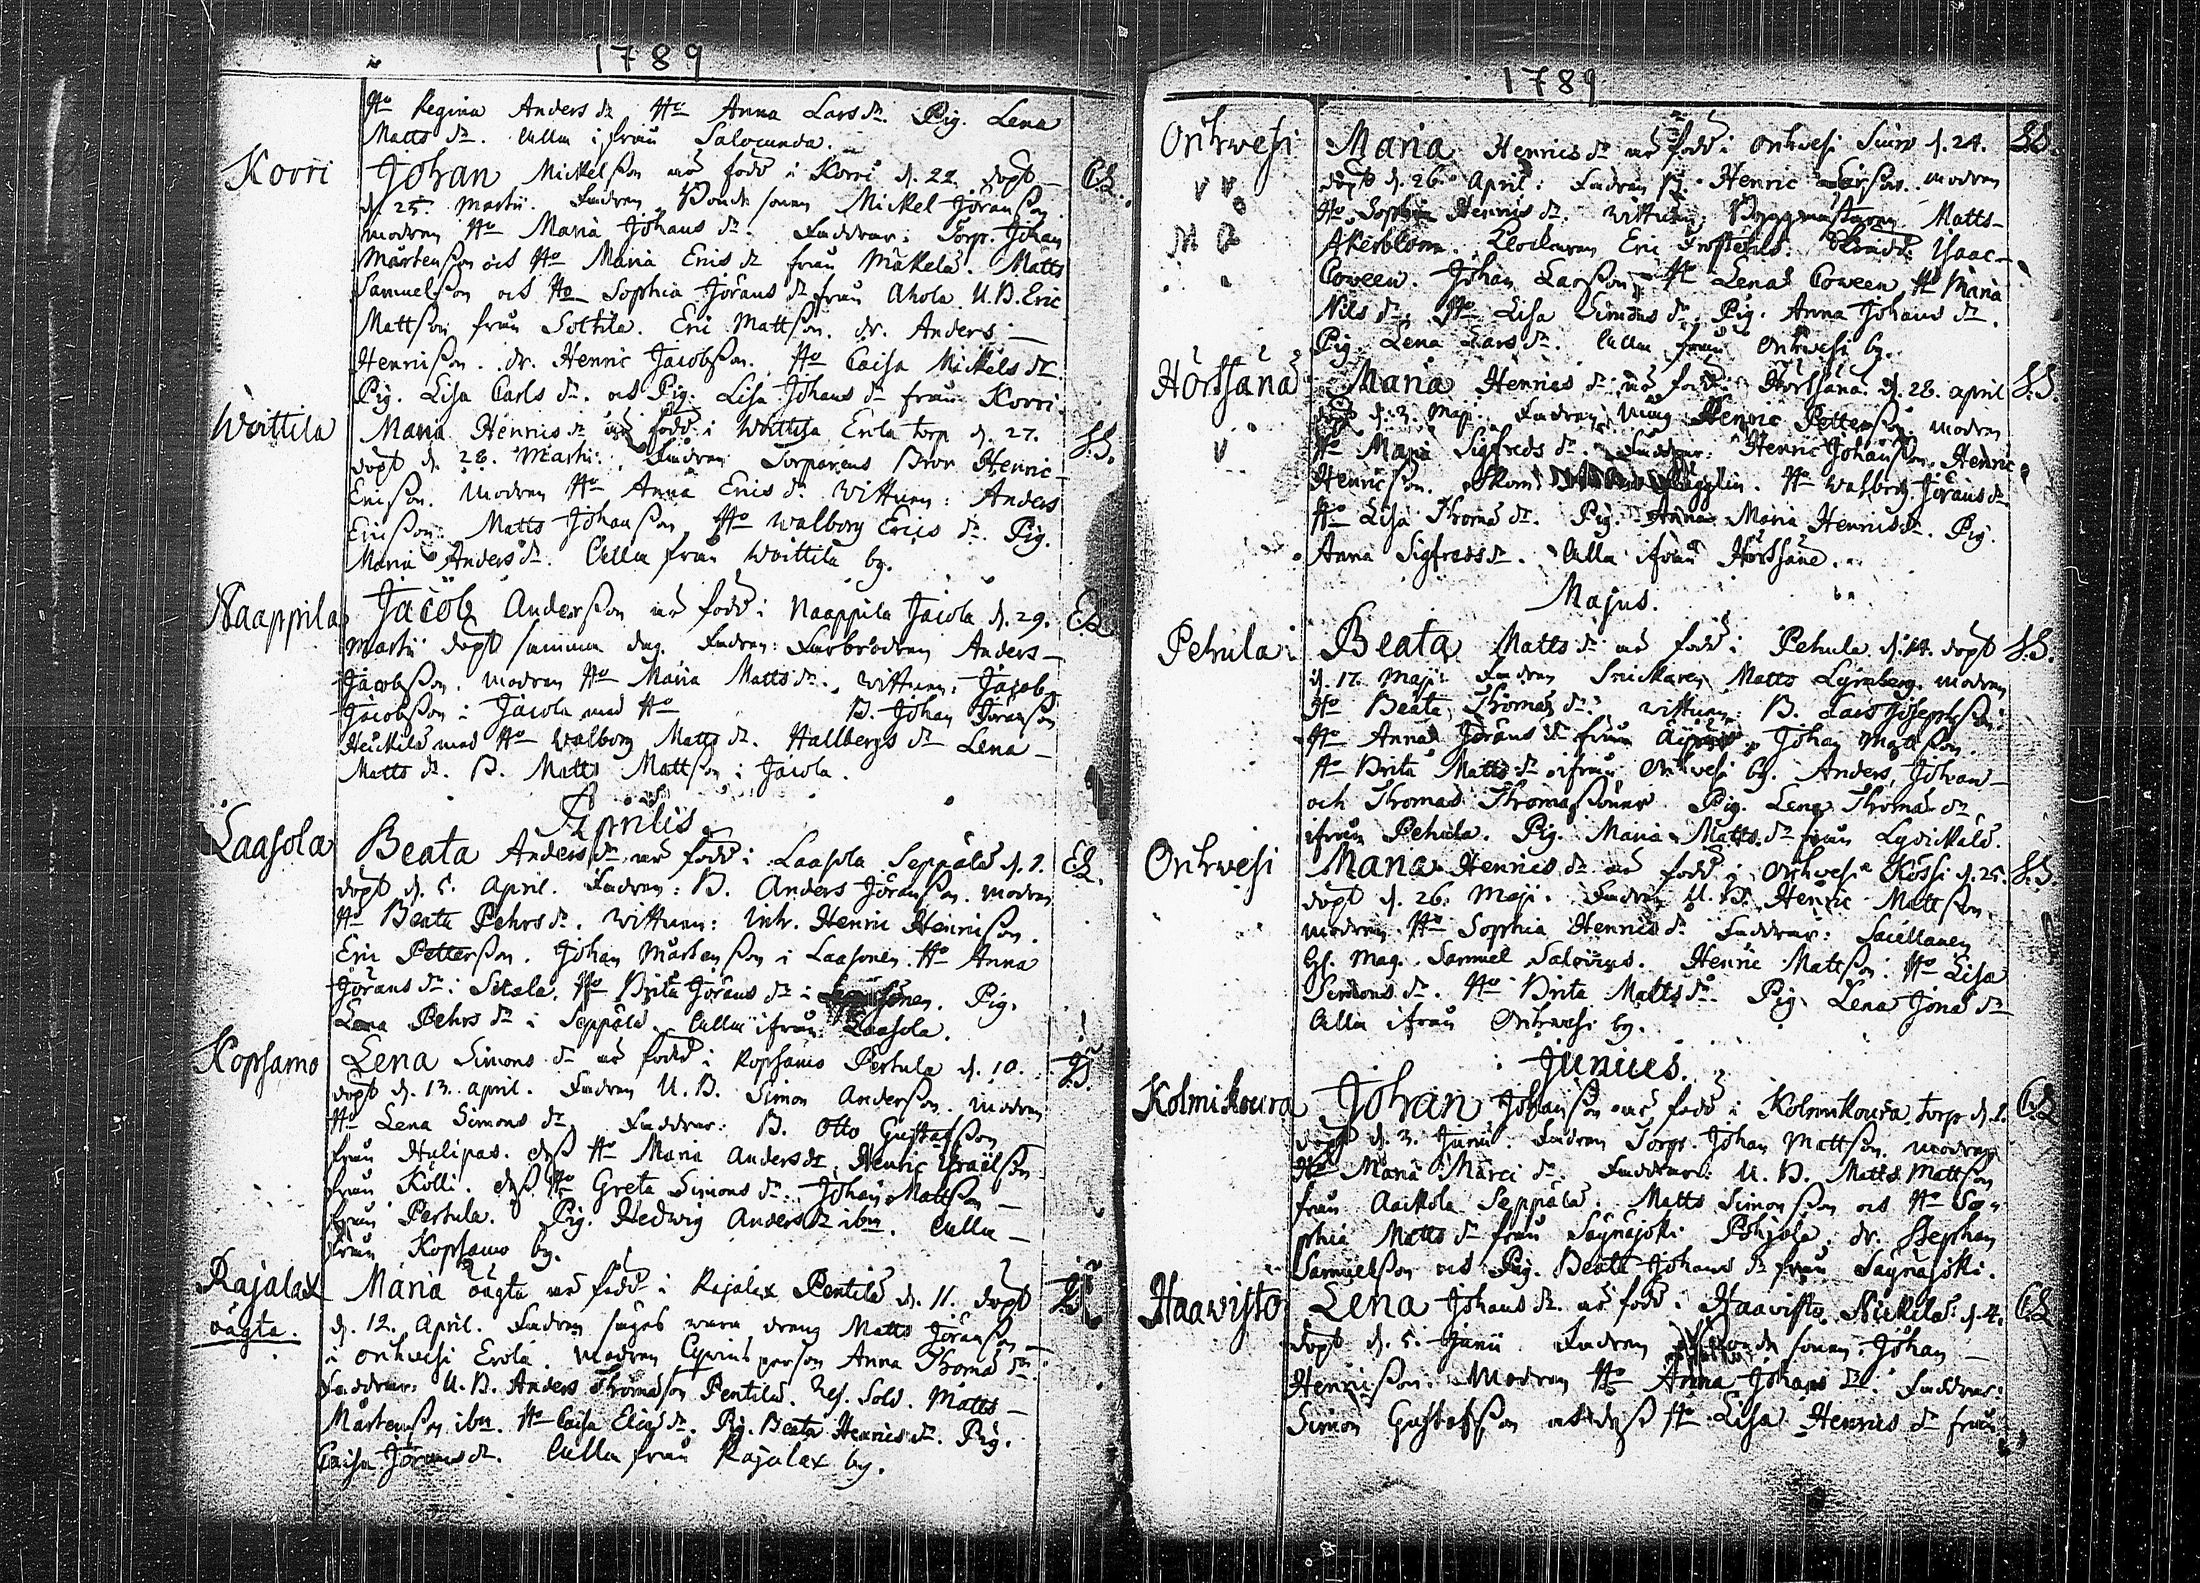 1789
Hu Regina Anders dr Hu Anna Lars dr. Pig. Lena
Matts dr. alla ifrån Salocunda.
Korri Johan Mickelsson är född i Korri d. 22 döpt CL.
d. 25. Martii. Fadren Bonde sonen Mickel Jöransson
modren Hu Maria Johans dr. Faddrar: Torp. Johan
Mårtensson och Hu Maria Erics dr från Mäkelä. Matts
Samuelsson och Hu Sophia Jörans dr från Ahola. U.B. Eric
Mattsson från Soltila. Eric Mattsson. dr. Anders
Henricsson. dr. Henric Jacobsson. Hu Caisa Mickels dr.
Pig. Lisa Carls dr. och Pig. Lisa Johans dr från Korri.
Woittila Maria Henrics dr är född i Woittila Erola torp d. 27. S.S.
döpt d. 28. Martii. Fadren Torparens Bror Henric
Ericsson. Modren Hu Anna Erics dr. Wittnen: Anders
Ericsson. Matts Johansson. Hu Walborg Erics dr. Pig.
Maria Anders dr. Alla från Woittila by.
Naappila Jacob Andersson är född i Naappila Jacola d. 29. EL
Martii döpt samma dag. Fadren: Farbrodren Anders
Jacobsson. modren Hu Maria Matts dr. Wittnen: Jacob
Jacobsson i Jacola med Hu B. Johan Jöransson
Heickilä med Hu Walborg Matts dr. Hallbergs dr Lena
Matts dr. B. Matts Mattsson i Jacola.
Aprilis
Laasola Beata Anders dr är född i Laasola Seppälä d. 1. EL.
döpt d. 5. April. Fadren: B. Anders Jöransson. modren
Hu Beata Pehrs dr. Wittnen: Inh. Henric Henricsson.
Eric Pettersson. Johan Mårtensson i Laasonen. Hu Anna
Jörans dr i Setala. Hu Brita Jörans dr i Pig.
Lena Pehrs dr i Seppälä. Alla ifrån Laasola.
Kopsamo Lena Simons dr är född i Kopsamo Pertula d. 10.
döpt d. 13. april. Fadren U.B. Simon Andersson. modren
Hu Lena Simons dr. Faddrar: B. Otto Gustafsson
från Hulipas. dess Hu Maria Anders dr. Henric Israelsson
från Kölli. dess Hu Greta Simons dr. Johan Mattsson
från Pertula. Pig. Hedwig Anders dr ibm. Alla
från Kopsamo by.
Rajalax Maria oägta är född i Rajalax Pentilä d. 11. döpt
oägta. d. 12. April. Fadren säges wara dreng Matts Jöransson
i Orihwesi Erola. Modren Qwins person Anna Thomas dr.
Faddrar: U.B. Anders Thomasson Pentilä. Res. Sold. Matts
Mårtensson ibm. Hu Caisa Erics dr. Pig. Beata Henrics dr. Pig.
Caisa Jörans dr. Alla från Rajalax by.
1789
Orihwesi Maria Henrics dr är född i Orihwesi d. 24. S.S.
döpt d. 26. April: Fadren Henric Larsson. modren
Hu Sophia Henrics dr. Wittnen: Matts
Åkerblom. Klockaren Eric Isaac
Coween. Johan Larsson. Hu Lena Coween Hu Maria
Nils dr. Hu Lisa Simons dr. Pig. Anna Johans dr.
Pig. Lena Lars dr. Alla från Orihwesi by.
Hörtsänä Maria Henrics dr är född i Hörtsänä d. 28. april S.S.
döpt d. 3. Maji. Fadren Henric Pettersson. modren
Hu Maria Sigfreds dr. Faddrar: Henric Johansson. Henric
Henricsson. Hu Walborg Jörans dr.
Hu Lisa Thomas dr. Pig. Anna Maria Henrics dr. Pig.
Anna Sigfreds dr. Alla ifrån Hörtsänä.
Majus.
Pehula Beata Matts dr är född i Pehula d. 14. döpt S.S.
d. 17. Maji: Fadren Snickaren Matts modren
Hu Beata Thomas dr. Wittnen: B. Lars Josephsson
Hu Anna Jörans dr från Johan Mattsson.
Hu Brita Matts dr ifrån Orihwesi by. Anders, Johan
och Thomas Thomassöner. Pig. Lena Thomas dr.
ifrån Pehula. Pig. Maria Matts dr från Lydickälä.
Orihwesi Maria Henrics dr är född i Orihwesi Kössi d. 25. S.S.
döpt d. 26. Maji. Fadren U.B. Henric Mattsson.
modren Hu Sophia Henrics dr Faddrar: Sacellanen
H. Mag. Samuel Salovius. Henric Mattsson. Hu Lisa
Simons dr. Hu Brita Matts dr. Pig. Lena Jona dr
Alla ifrån Orihwesi by.
Junius.
Kolmikoura Johan Johansson är född i Kolmikoura torp d. 2. CL
döpt d. 3. Junii. Fadren Torp. Johan Mattsson. modren
Hu Maria Marci dr. Faddrar: U.B. Matts Mattsson
från Aackola Seppälä. Matts Simonsson och Hu So-
phia Matts dr från Säynäjoki Pohjola. dr. Stephan
Samuelsson och Pig. Beata Johans dr från Säynäjoki.
Haawisto Lena Johans dr är född i Haawisto Nickilä d. 4. CL
döpt d. 5. Junii. Fadren Bonde sonen Johan
Henricsson. Modren Hu Anna Johans dr. Faddrar:
Simon Gustafsson och dess Hu Lisa Henrics dr från